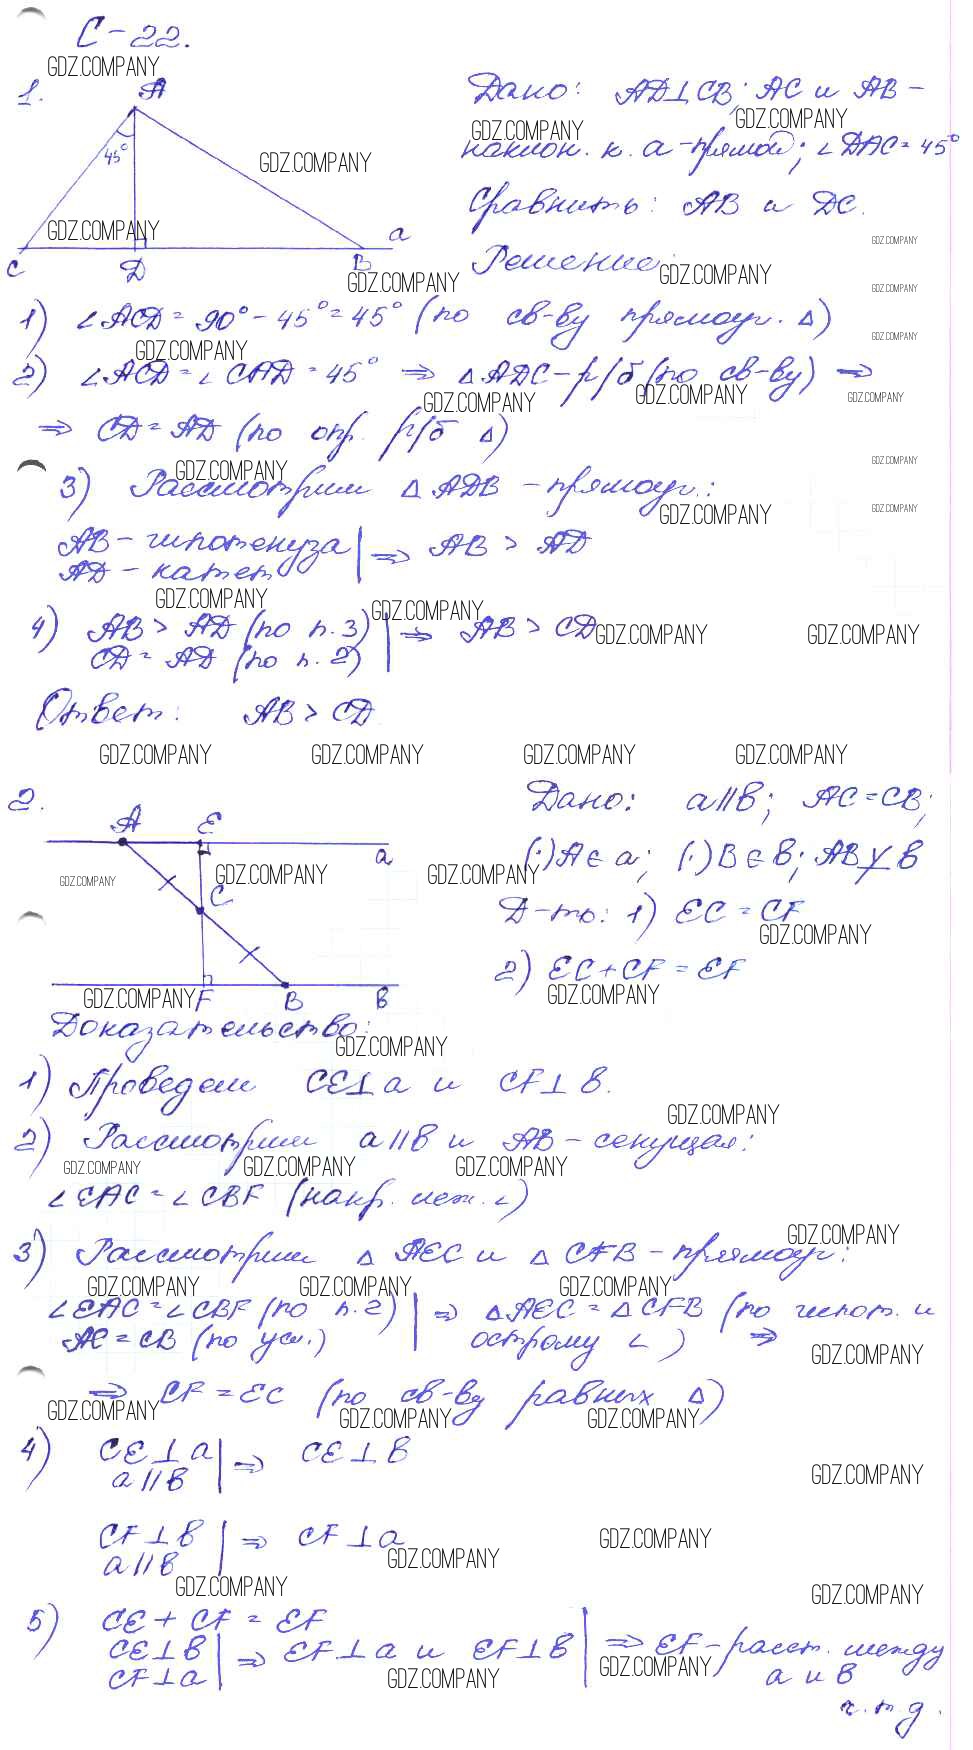 С-22.
1.
A
45°
a
C
D
B
Дано: AD⊥CB; AC и AB –
наклон. к. a-прямой; ∠DAC = 45°
Сравнить: AB и DC.
Решение:
1) ∠ACD = 90° – 45° = 45° (по св-ву прямоуг. Δ)
2) ∠ACD = ∠CAD = 45° ⇒ ΔADC – р/б (по св-ву) ⇒
⇒ CD = AD (по опр. р/б Δ)
3) Рассмотрим Δ ADB – прямоуг.:
AB – гипотенуза | ⇒ AB > AD
AD – катет
4) AB > AD (по п.3) | ⇒ AB > CD
CD = AD (по п.2)
Ответ: AB > CD.
2.
A
E
a
C
F
B
в
Дано: a||в; AC = CB;
(·)A∈a; (·)B∈в; AB⊥̸в
Д-ть: 1) EC = CF
2) EC + CF = EF
Доказательство:
1) Проведем CE⊥a и CF⊥в.
2) Рассмотрим a||в и AB – секущая:
∠EAC = ∠CBF (накр. леж. ∠)
3) Рассмотрим Δ AEC и Δ CFB – прямоуг:
∠EAC = ∠CBF (по п.2) | ⇒ ΔAEC = ΔCFB (по гипот. и
AC = CB (по усл.) острому ∠) ⇒
⇒ CF = EC (по св-ву равных Δ)
4) CE⊥a | ⇒ CE⊥в
a||в
CF⊥в | ⇒ CF⊥a
a||в
5) CE + CF = EF
CE⊥в | ⇒ EF⊥a и EF⊥в | ⇒ EF – расст. между
CF⊥a a и в
ч.т.д.
GDZ.COMPANY